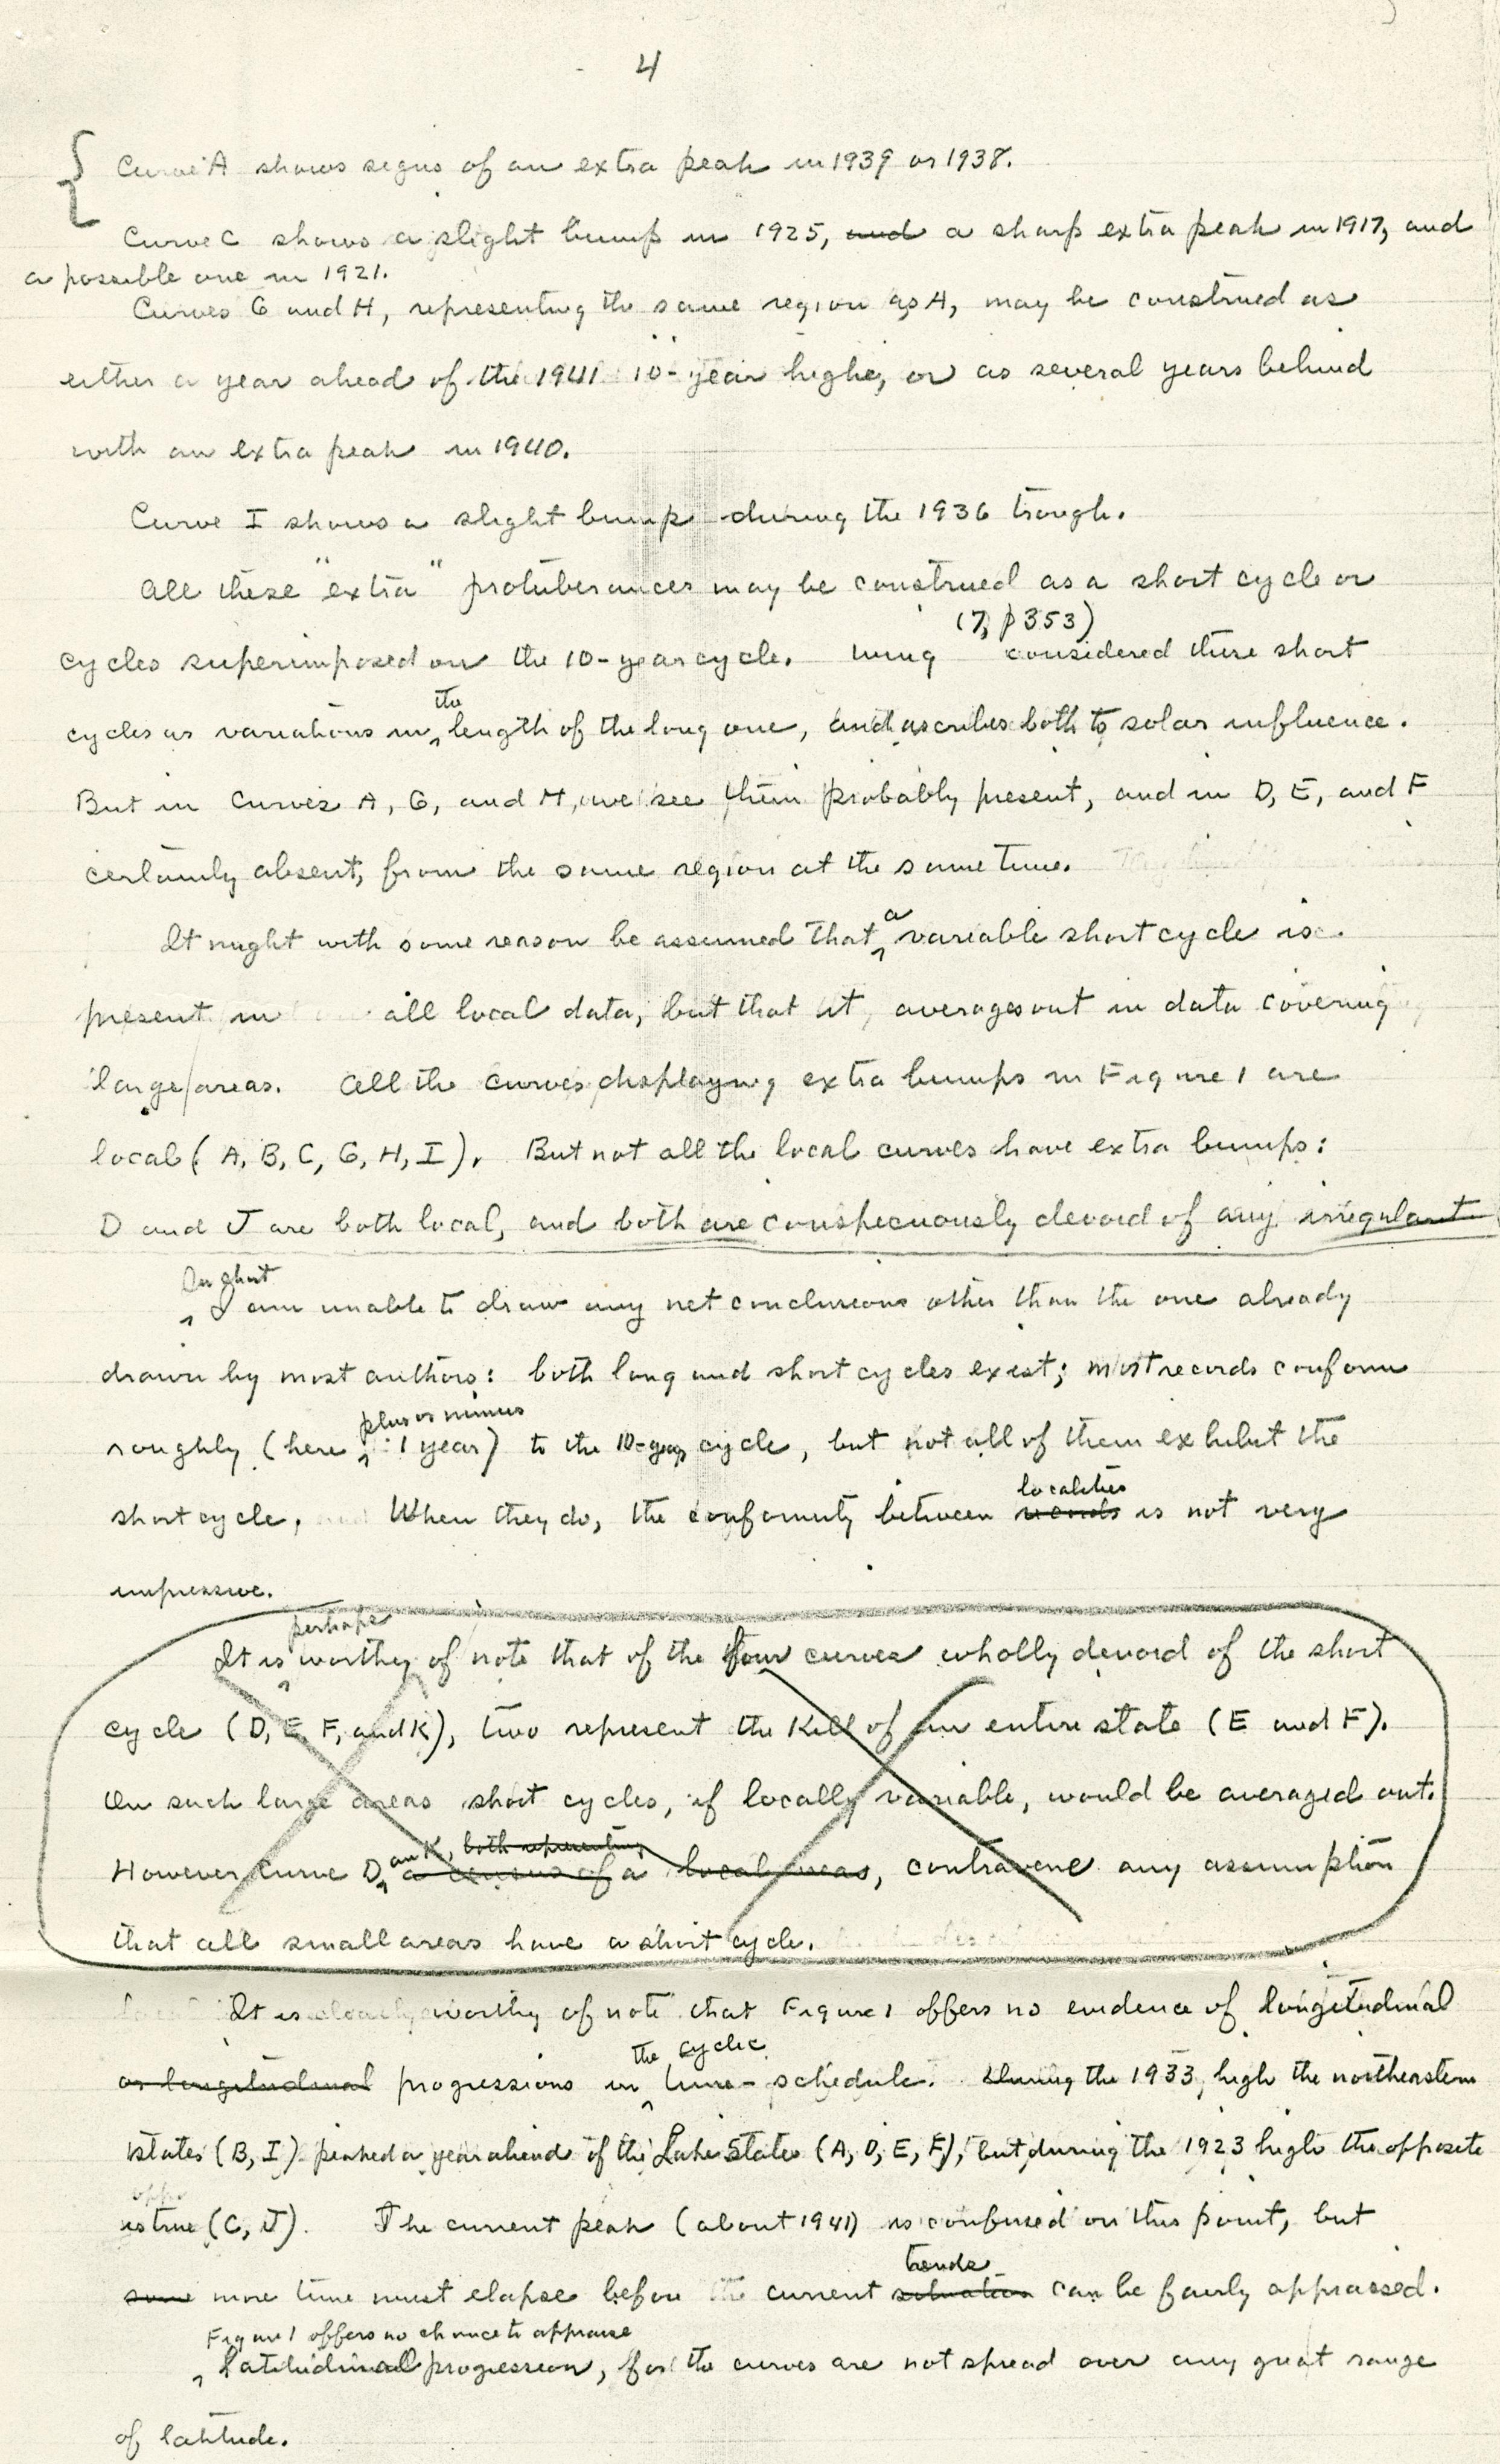 4
Curve A shows signs of an extra peak in 1939 or 1938.
Curve C shows a slight bump in 1925, and a sharp extra peak in 1917, and
a possible one in 1921.
Curves G and H, representing the same region as A, may be construed as
either a year ahead of the 1941 10-year highs, or as several years behind
with an extra peak in 1940.
Curve I shows a slight bump during the 1936 trough.
All these "extra" protuberances may be construed as a short cycle or
(7, p 353)
cycles superimposed on the 10-year cycle. Wing considered these short
the
cycles as variations in length of the long one, and ascribes both to solar influence.
But in Curves A, G, and H, we see them probably present, and in D, E, and F
certainly absent, from the same region at the same time.
a
It might with some reason be assumed that variable short cycle is
present in all local data, but that it averages out in data covering
large areas. All the curves displaying extra bumps in Figure 1 are
local (A, B, C, G, H, I). But not all the local curves have extra bumps:
D and J are both local, and both are conspicuously devoid of any
In short
I am unable to draw any net conclusions other than the one already
drawn by most authors: both long and short cycles exist; most records conform
plus or minus
roughly (here 1 year) to the 10-year cycle, but not all of them exhibit the
localities
short cycle. When they do, the conformity between records is not very
impressive.
perhaps
It is worthy of note that of the four curves wholly devoid of the short
cycle (D, E, F, and K), two represent the kill of an entire state (E and F).
On such large areas short cycles, if locally variable, would be averaged out.
and K, both representing
However Curve D, a census of a local areas, contravene any assumption
that all small areas have a short cycle.
It is worthy of note that Figure 1 offers no evidence of longitudinal
the cyclic
or longitudinal progressions in time-schedule. During the 1933 high the northeastern
states (B, I) peaked a year ahead of the Lake States (A, D, E, F), but during the 1923 high the opposite
is true (C, J). The current peak (about 1941) is confused on this point, but
trends
some more time must elapse before the current situation can be fairly appraised.
Figure 1 offers no chance to appraise
latitudinal progression, for the curves are not spread over any great range
of latitude.